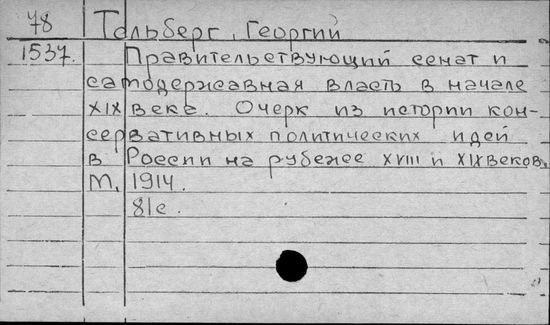 78 Тальберг, Георгий
1537. Правительствующий сенат и
самодержавная власть в начале
XIX века. Очерк из истории кон-
сервативных политических идей
в России на рубеже XVIII и XIX веков.
М. 1914.
81с.